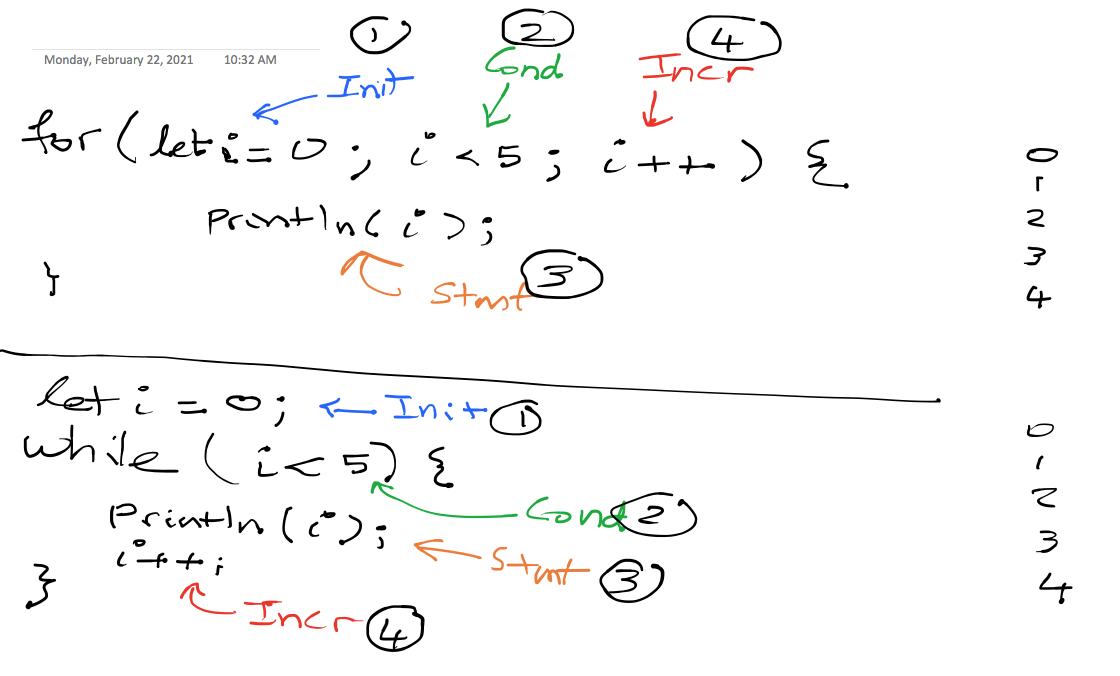 ① ② ④
Monday, February 22, 2021 10:32 AM
Init Cond Incr
for (let i = 0 ; i < 5 ; i++ ) {
println( i );
Stmt ③
}
0
1
2
3
4
let i = 0; Init ①
while ( i < 5) {
println (i);
Cond ②
i++;
Stmt ③
}
Incr ④
0
1
2
3
4